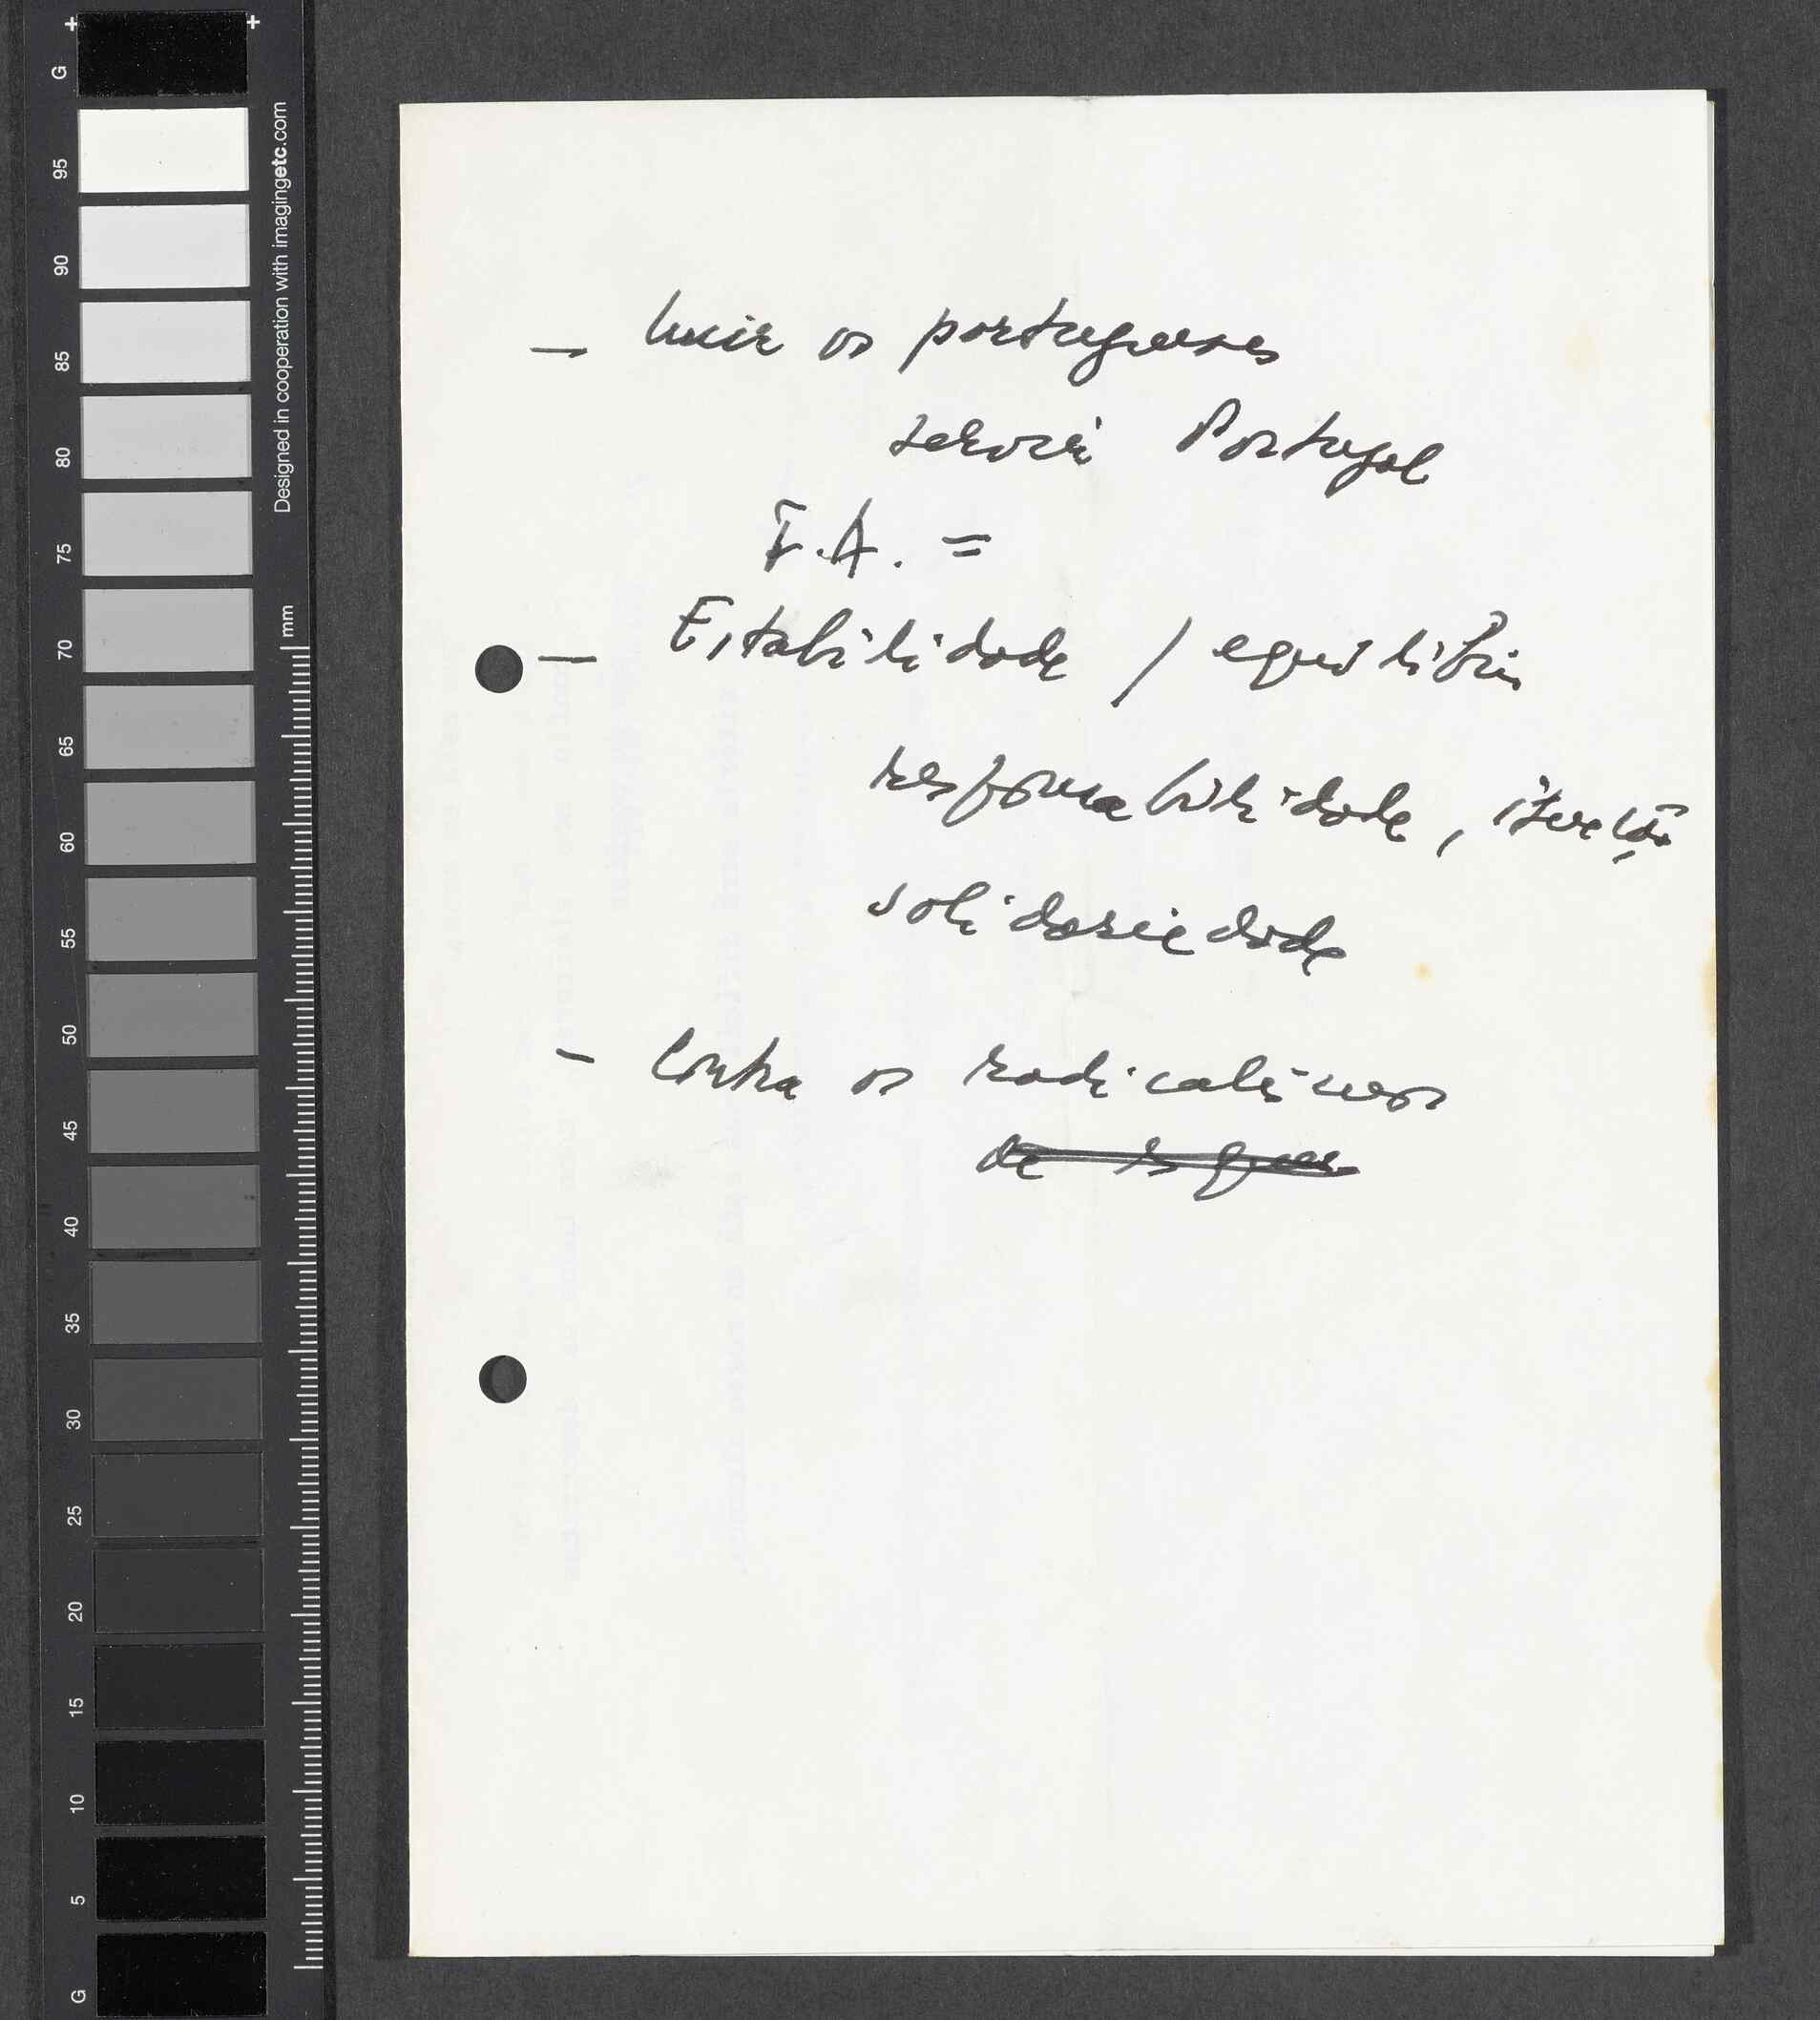 G
95
90
85
80
75
70
65
60
55
50
45
40
35
30
25
20
15
10
5
G
Designed in cooperation with imagingetc.com
mm
— Unir os portugueses
servir Portugal
F.A. =
— Estabilidade / equilíbrio
responsabilidade, isenção
solidariedade
- Contra os radicalismos
de esquer